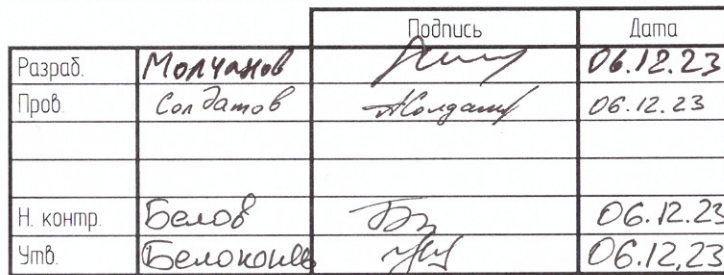 Подпись Дата
Разраб. Молчанов 06.12.23
Пров. Солдатов 06.12.23
Н. контр. Белов 06.12.23
Утв. 06.12.23